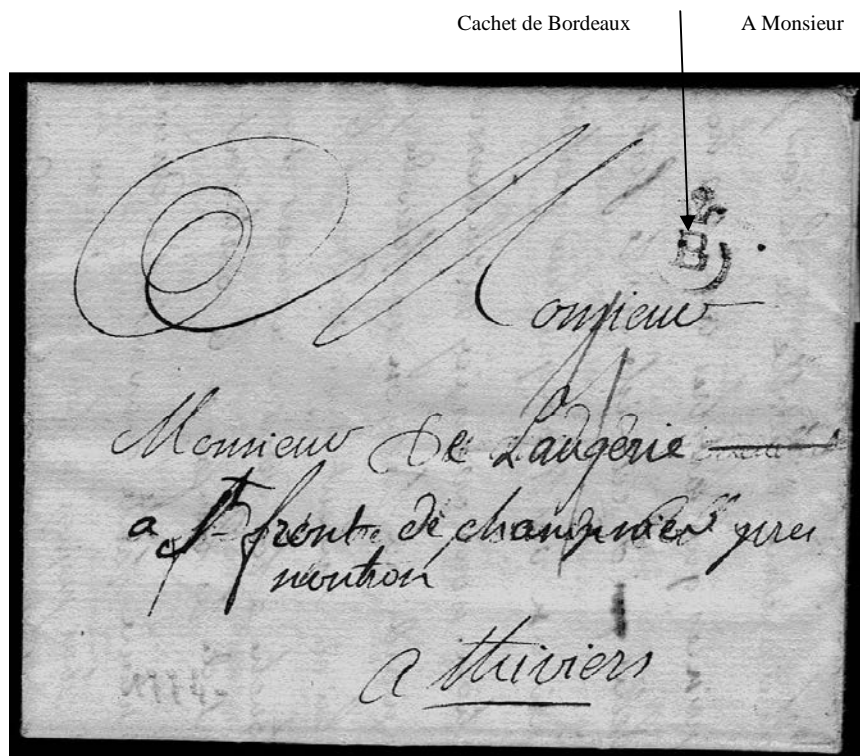 Cachet de Bordeaux A Monsieur
B
Monsieur
Monsieur De Laugerie
a St front de champnier pres
nontron
a thiviers